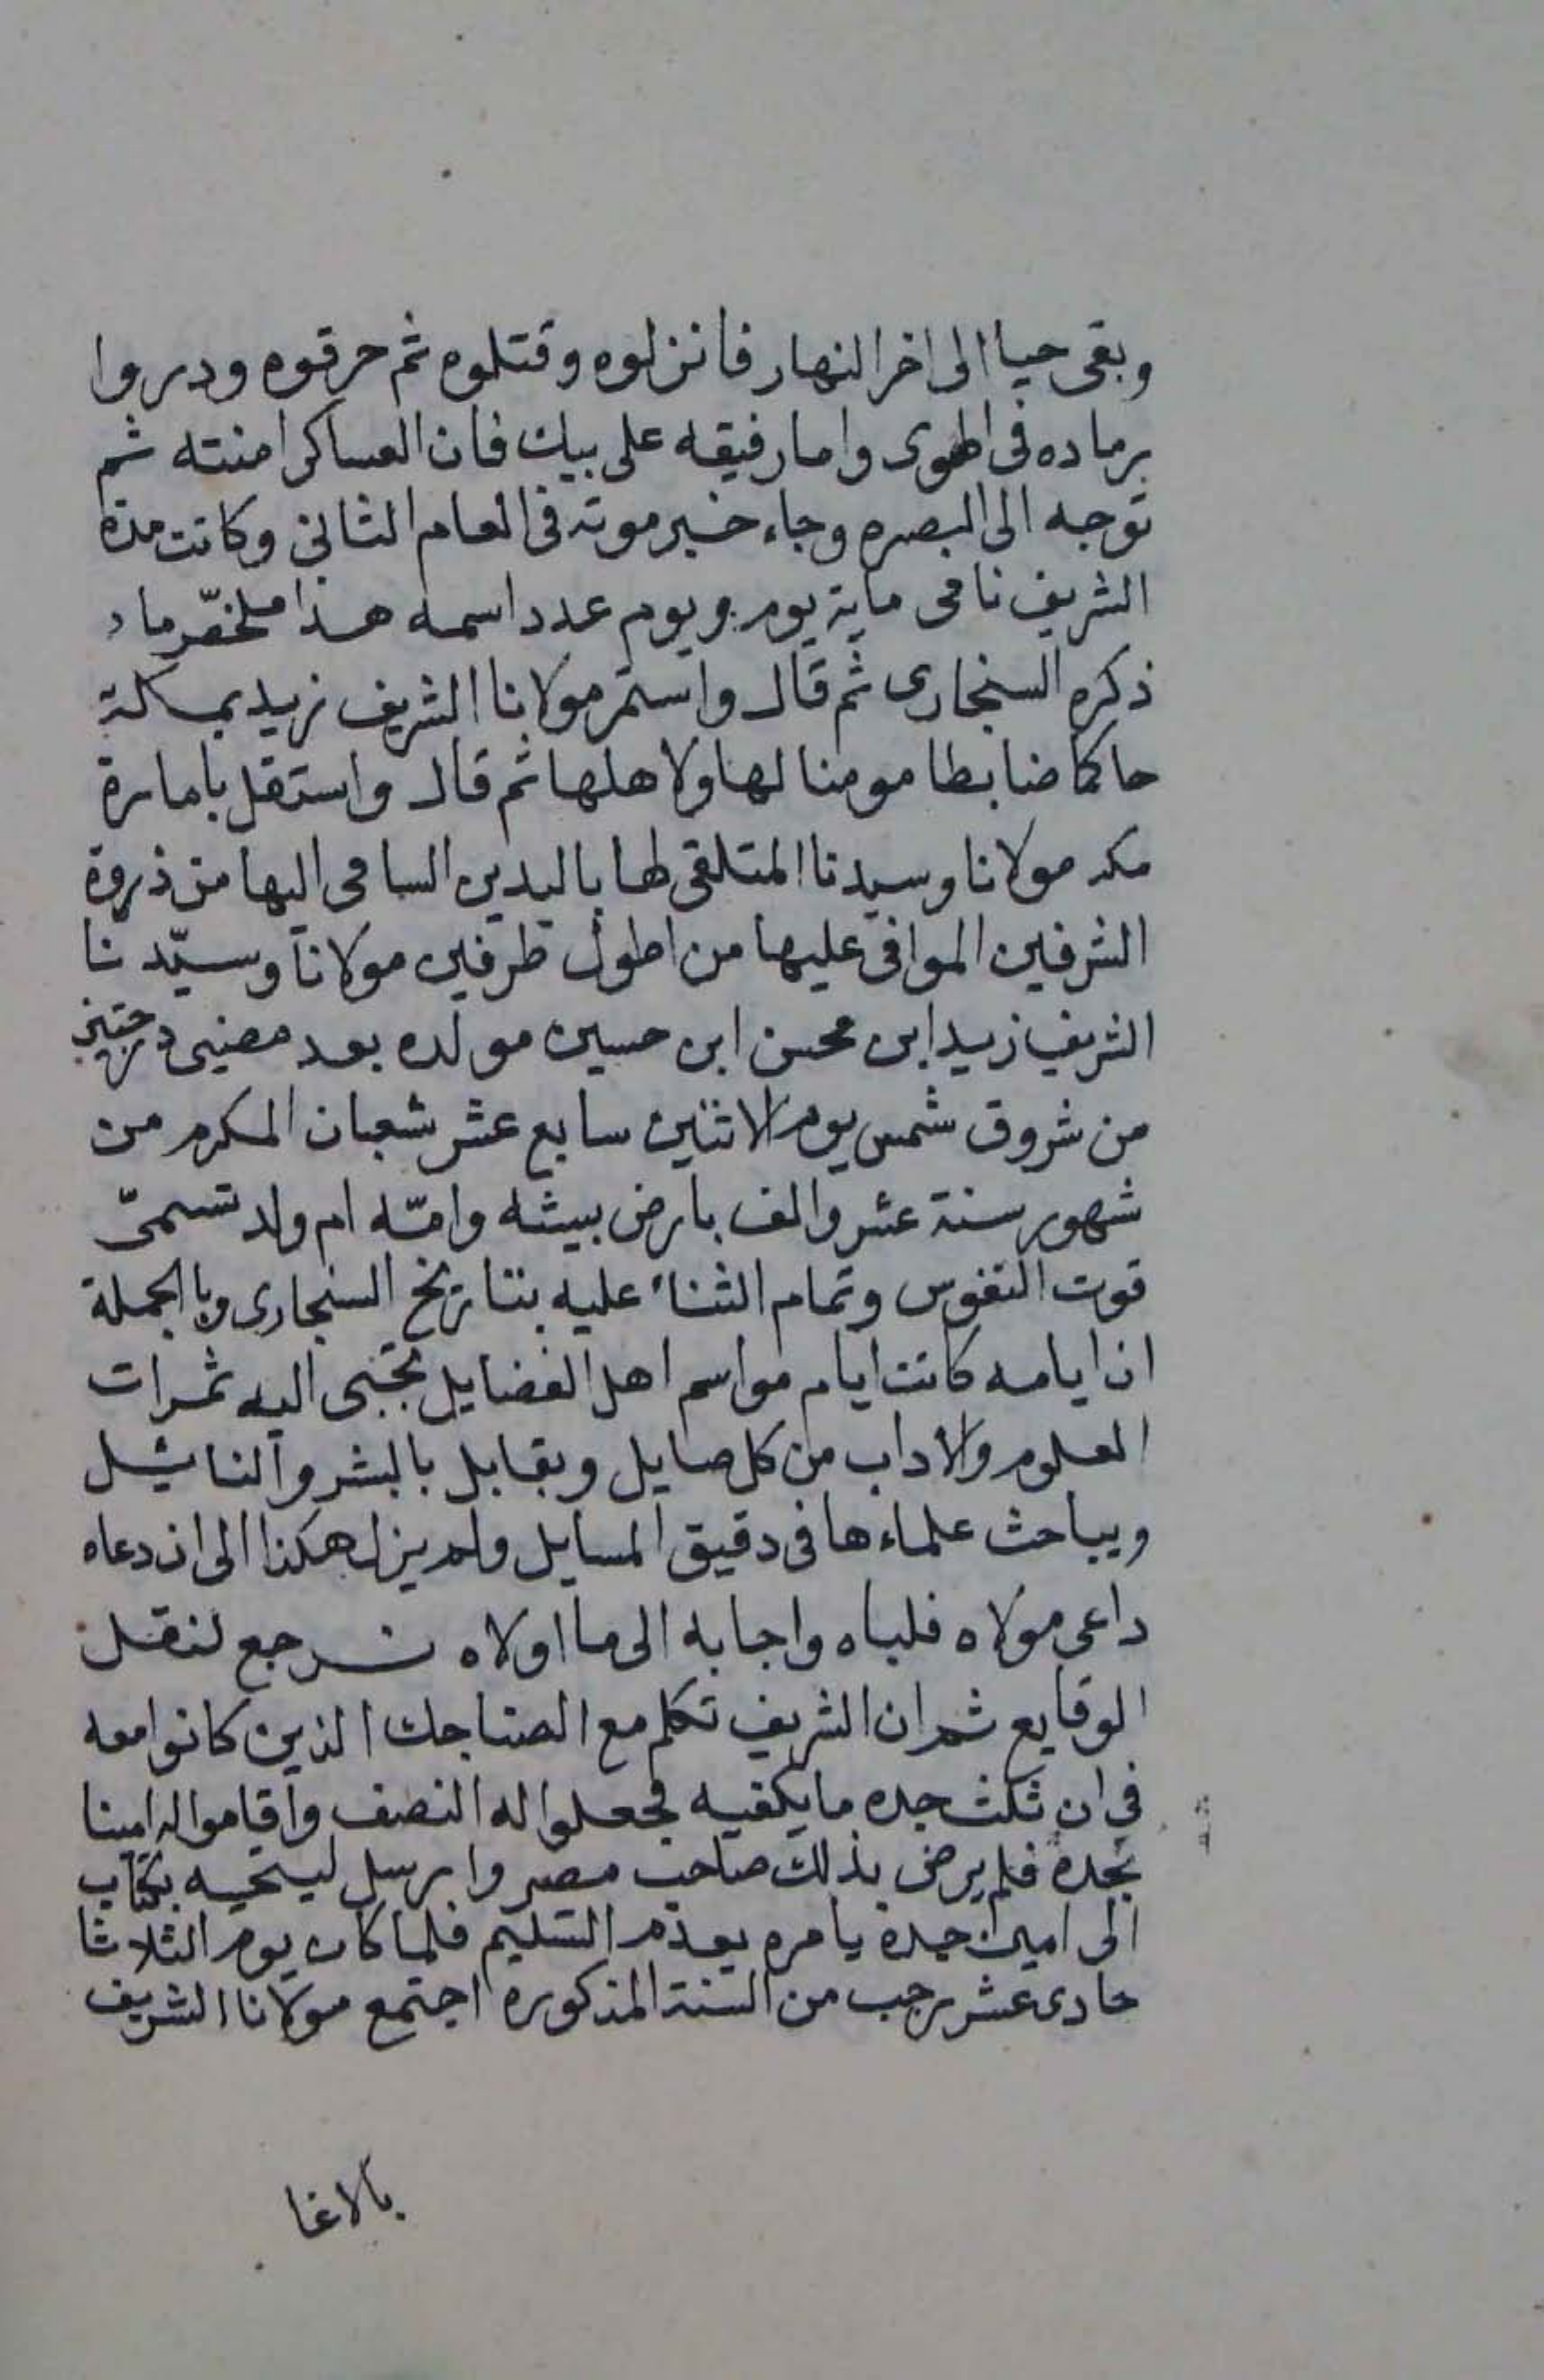 وبقى حيا الى اخر النهار فانزلوه وقتلوه ثم حرقوه ودروا
برماده فى الهوى واما رفيقه على بيك فان العساكر امنته ثم
توجه الى البصره وجاء خبر موته فى العام الثانى وكانت مدة
الشريف نامى ماية يوم ويوم عدد اسمه هذا ملخص ما
ذكره السنجارى ثم قال واستمر مولانا الشريف زيد بمكة
حاكما ضابطا مومنا لها ولاهلها ثم قال واستقل بامارة
مكه مولانا وسيدنا المتلقى لها باليدين السامى اليها من ذروة
الشرفين الموافى عليها من اطول طرفين مولانا وسيّدنا
الشريف زيد ابن محسن ابن حسين مولده بعد مضيى درجتين
من شروق شمس يوم الاثنين سابع عشر شعبان المكرم من
شهور سنة عشر والف بارض بيشه وامّه ام ولد تسمّى
قوت النفوس وتمام الثناء عليه بتاريخ السنجارى وبالجملة
ان ايامه كانت ايام مواسم اهل الفضايل تجبى اليه ثمرات
العلوم والاداب من كل صايل ويقابل بالبشر والنايل
ويباحث علماءها فى دقيق المسايل ولم يزل هكذا الى ان دعاه
داعى مولاه فلباه واجابه الى ما اولاه نرجع لنقل
الوقايع ثم ان الشريف تكلم مع الصناجك الذين كانوا معه
في ان ثلث جده ما يكفيه فجعلوا له النصف واقاموا له امينا
بجدة فلم يرض بذلك صاحب مصر وارسل بكتاب
الى امين جدة يامره بعدم التسليم فلما كان يوم الثلاثا
حادى عشر رجب من السنة المذكوره اجتمع مولانا الشريف
بالاغا